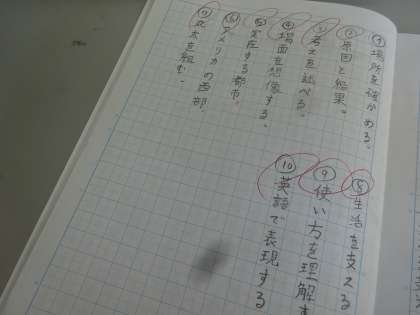 ①場所を確かめる。
②原因と結果。
③考えを述べる。
④場面を想像する。
⑤実在する都市。
⑥アメリカの西部。
⑦丸太を組む。
⑧生活を支える
⑨使い方を理解す
⑩英語で表現する